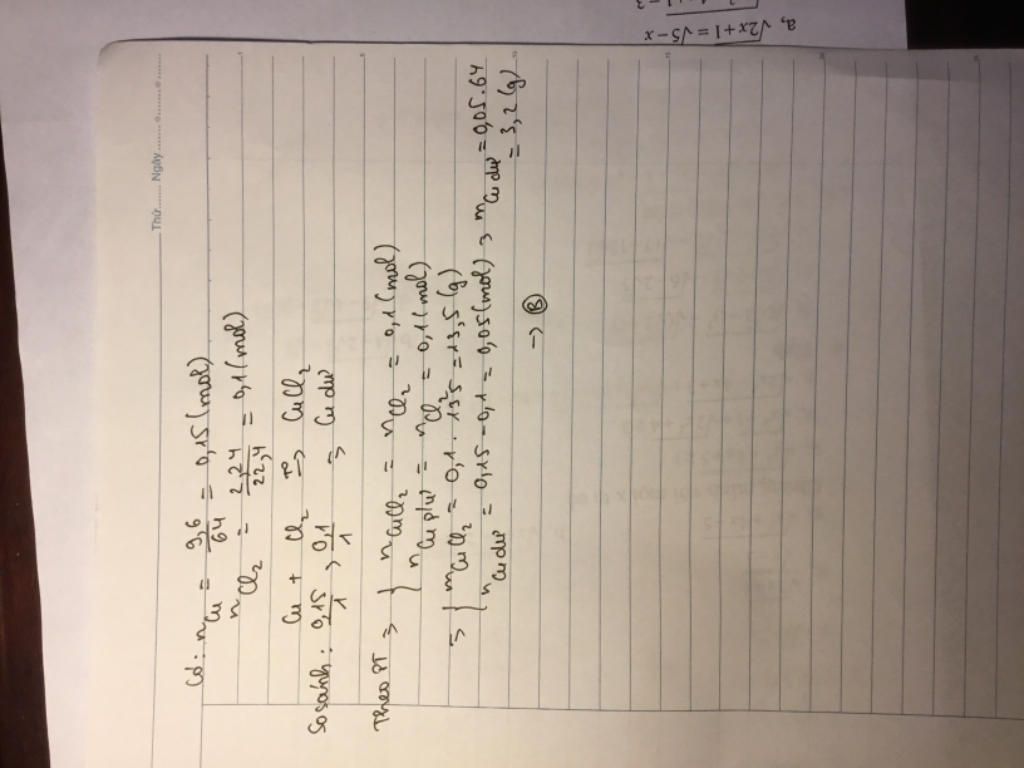 Thứ ........ Ngày ........
Có: n Cu = 9,6/64 = 0,15 (mol)
n Cl2 = 2,24/22,4 = 0,1 (mol)
Cu + Cl2 t° → CuCl2
So sánh: 0,15/1 > 0,1/1 => Cu dư
Theo PT => { n CuCl2 = n Cl2 = 0,1 (mol)
n Cu p/ư = n Cl2 = 0,1 (mol)
=> { m CuCl2 = 0,1 . 135 = 13,5 (g)
n Cu dư = 0,15 - 0,1 = 0,05 (mol) => m Cu dư = 0,05 . 64
= 3,2 (g)
-> Ⓑ
a, √2x+1 = √5-x